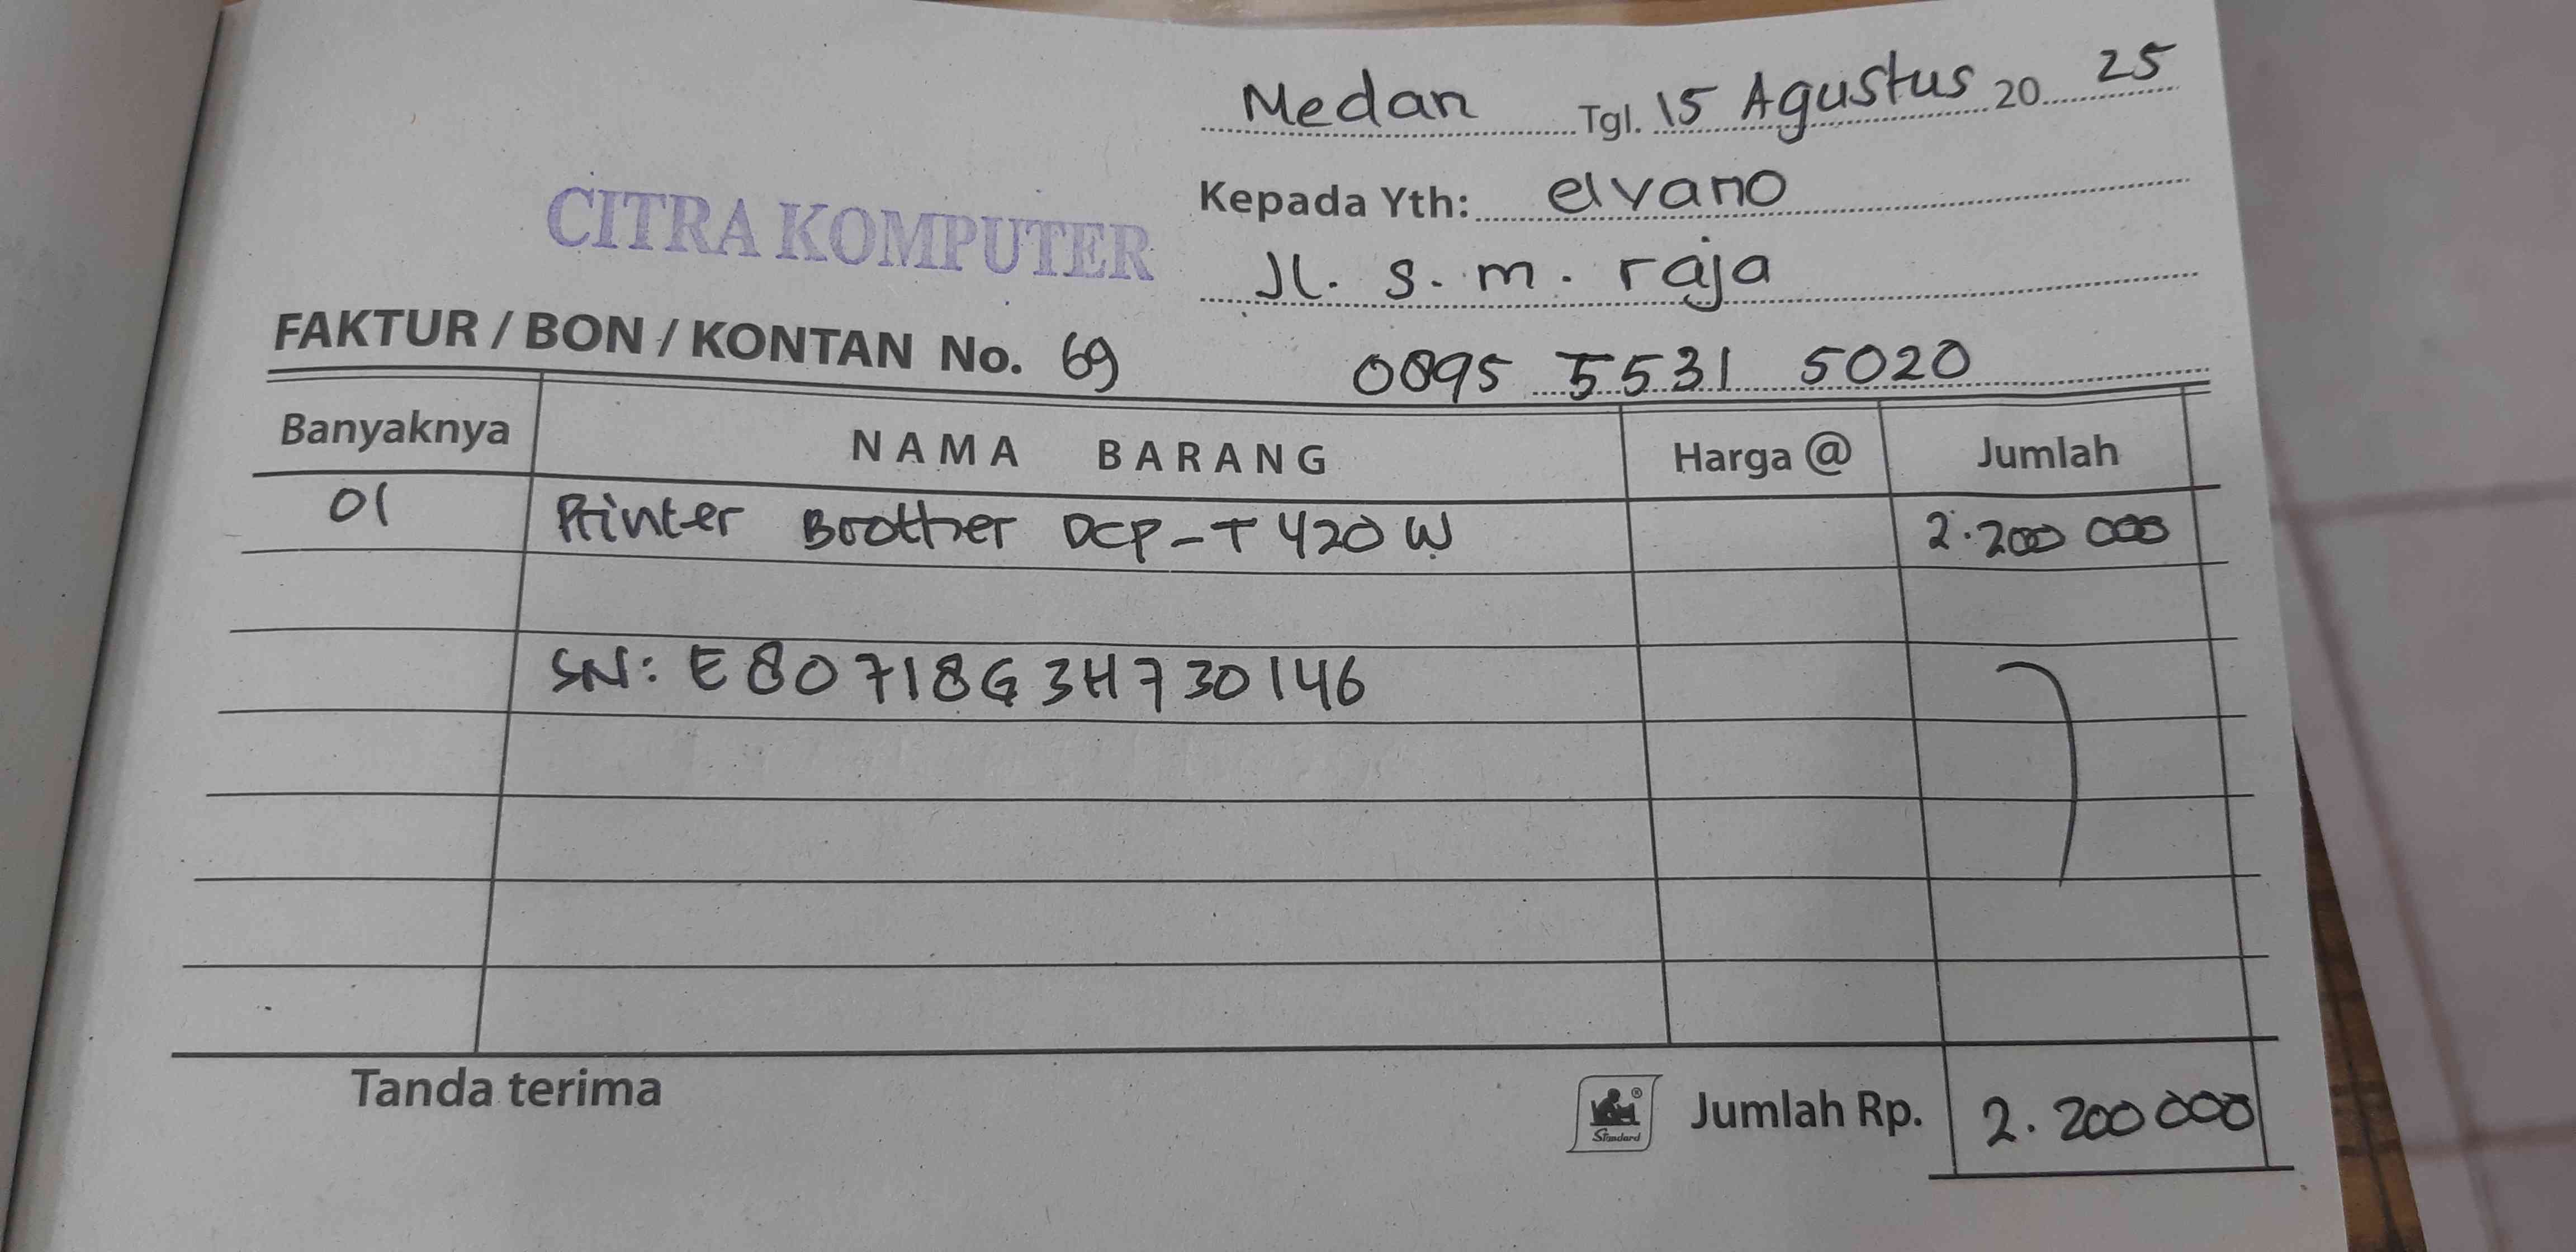 Medan Tgl. 15 Agustus 20 25
CITRA KOMPUTER
Kepada Yth: elvano
Jl. s. m. raja
FAKTUR / BON / KONTAN No. 69
0895 5531 5020
Banyaknya NAMA BARANG Harga @ Jumlah
01 Printer Brother DCP-T420W 2.200 000
SN: E80718G3H730146
Tanda terima
Standard ® Jumlah Rp. 2.200 000